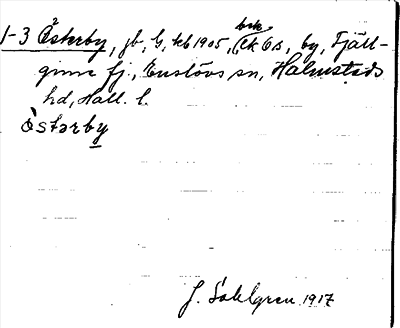 1-3 Österby, jb, G, kb 1905, (ek Ö.s, by, Fjäll-
ginne fj., Enslövs sn, Halmstads
hd, Hall. l.
östərby
J. Sahlgren 1917